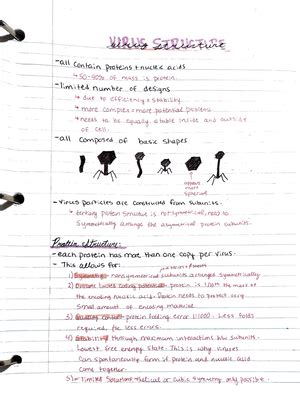 VIRUS STRUCTURE
- all contain proteins + nucleic acids
↳ 50-90% of mass is protein.
- limited number of designs
↳ due to efficiency + stability.
↳ more complex = more potential problems
↳ needs to be equally stable inside and outside
of cell.
- all composed of basic shapes
appears more spherical
- Virus particles are constructed from subunits.
↳ tertiary protein structure is not symmetrical, need to
symmetrically arrange the asymmetrical protein subunits.
Protein structure:
- each protein has more than one copy per virus.
- This allows for:
1) nonsymmetrical subunits arranged symmetrically
2) protein is 1/10th the mass of
the encoding nucleic acid. Protein needs to protect very
small amount of encoding material.
3) protein folding error 1:1000. Less folds
required, for less errors.
4) through maximum interactions b/w subunits.
Lowest free energy state. This is why viruses
can spontaneously form if protein and nucleic acid
come together.
5) Limited Solutions helical or cubic symmetry only possible.